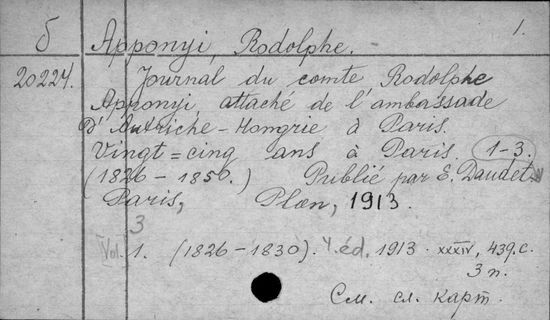 1.
б Apponyi, Rodolphe.
20224. Journal du comte Rodolphe
Apponyi, attaché de l'ambassade
d'Autriche-Hongrie à Paris.
Vingt=cinq ans à Paris. 1-3.
(1826-1850.) Publié par E. Daudet.
Paris, Plon, 1913.
3
Vol. 1. (1826-1830). 4. éd. 1913. XXXIV, 439.c.
3 п.
См. сл. карт.